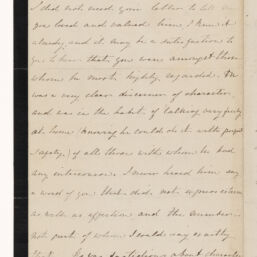 I did not need your letter to tell me
you loved and valued him I knew it
already, and it may be a satisfaction to
you to know that you were amongst those
whom he most highly regarded. He
was a very clear discerner of character
and was in the habit of talking very freely
at home (knowing he could do it with perfect
safety,) of all those with whom he had
any intercourse. I never heard him say
a word of you that did not express esteem
as well as affection and the number
not part of whom I could say exactly
that. about character